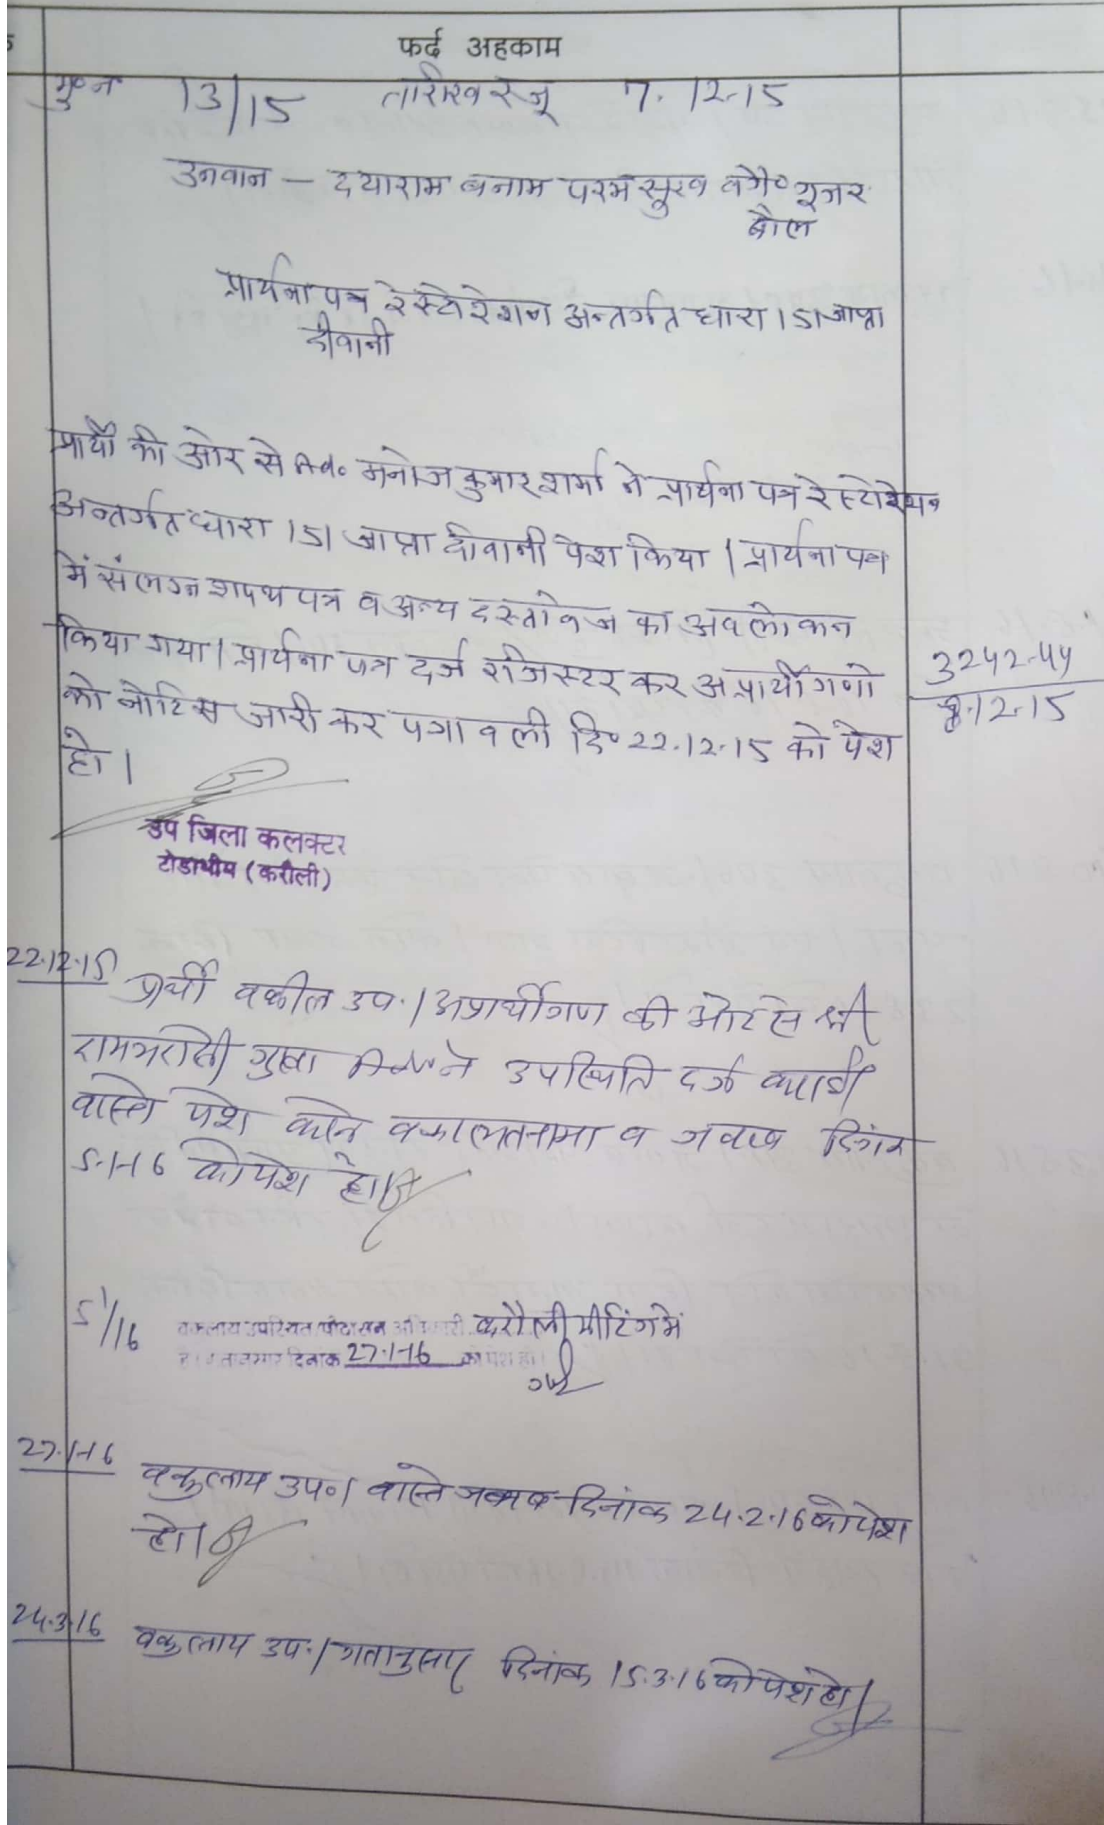 फर्द अहकाम
मु०न 13/15 तारीख रजू 7.12.15
उनवान – दयाराम बनाम परमसुख वगै० गूजर
बौल
प्रार्थना पत्र रेस्टोरेशन अन्तर्गत धारा 151 जाप्ता
दीवानी
प्रार्थी की ओर से Ad. मनोज कुमार शर्मा ने प्रार्थना पत्र रेस्टोरेशन
अन्तर्गत धारा 151 जाप्ता दीवानी पेश किया। प्रार्थना पत्र
में संलग्न शपथ पत्र व अन्य दस्तावेज का अवलोकन
किया गया। प्रार्थना पत्र दर्ज रजिस्टर कर अप्रार्थीगणो
को नोटिस जारी कर पत्रावली दि० 22.12.15 को पेश
हो।
3242-44
8.12.15
उप जिला कलक्टर
टोडाभीम (करौली)
22.12.15 प्रार्थी वकील उप.। अप्रार्थीगण की ओर से श्री
रामभरोसी गुप्ता Adv ने उपस्थिति दर्ज करायी
वास्ते पेश करने वकालतनामा व जवाब दिनांक
5.1.16 को पेश हो।
5/1/16 वकलाय उपस्थित पीठासीन अधिकारी करौली मीटिंग में
दिनांक 27.1.16 को पेश हो।
27.1.16 वकुलाय उप०। वास्ते जवाब दिनांक 24.2.16 को पेश
हो।
24.3.16 वकुलाय उप.। गतानुसार दिनांक 15.3.16 को पेश हो।